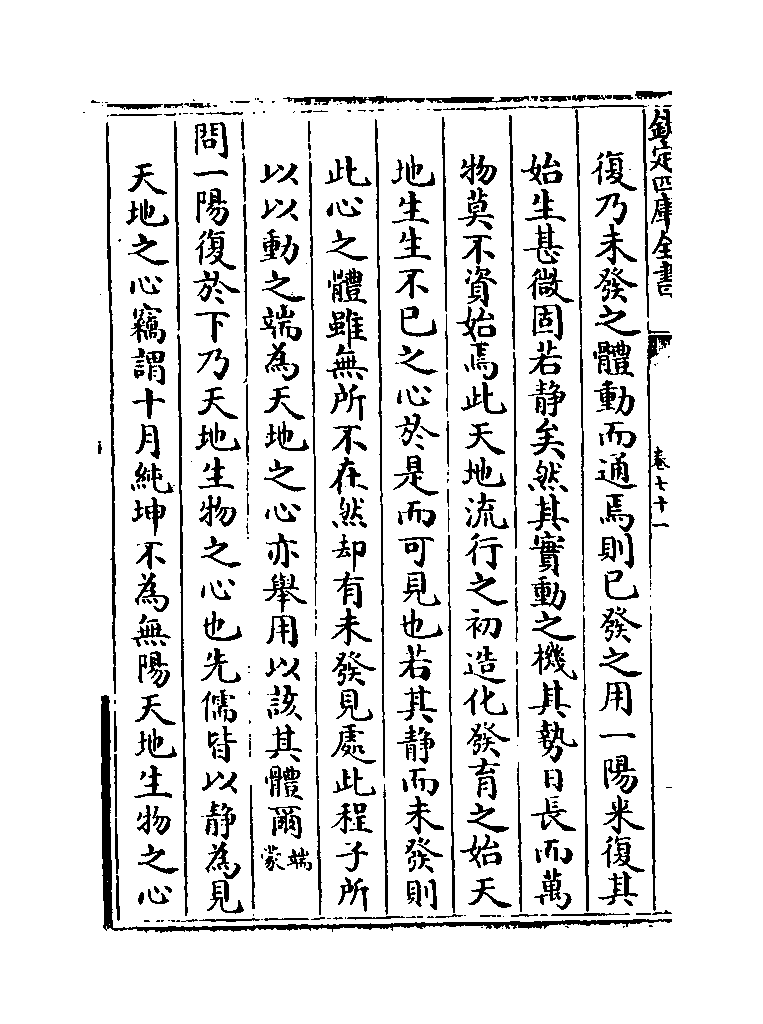 欽定四庫全書
卷七十一
復乃未發之體動而通焉則已發之用一陽来復其
始生甚微固若静矣然其實動之機其勢日長而萬
物莫不資始焉此天地流行之初造化發育之始天
地生生不已之心於是而可見也若其静而未發則
此心之體雖無所不在然却有未發見處此程子所
以以動之端為天地之心亦舉用以該其體爾端蒙
問一陽復於下乃天地生物之心也先儒皆以静為見
天地之心竊謂十月純坤不為無陽天地生物之心